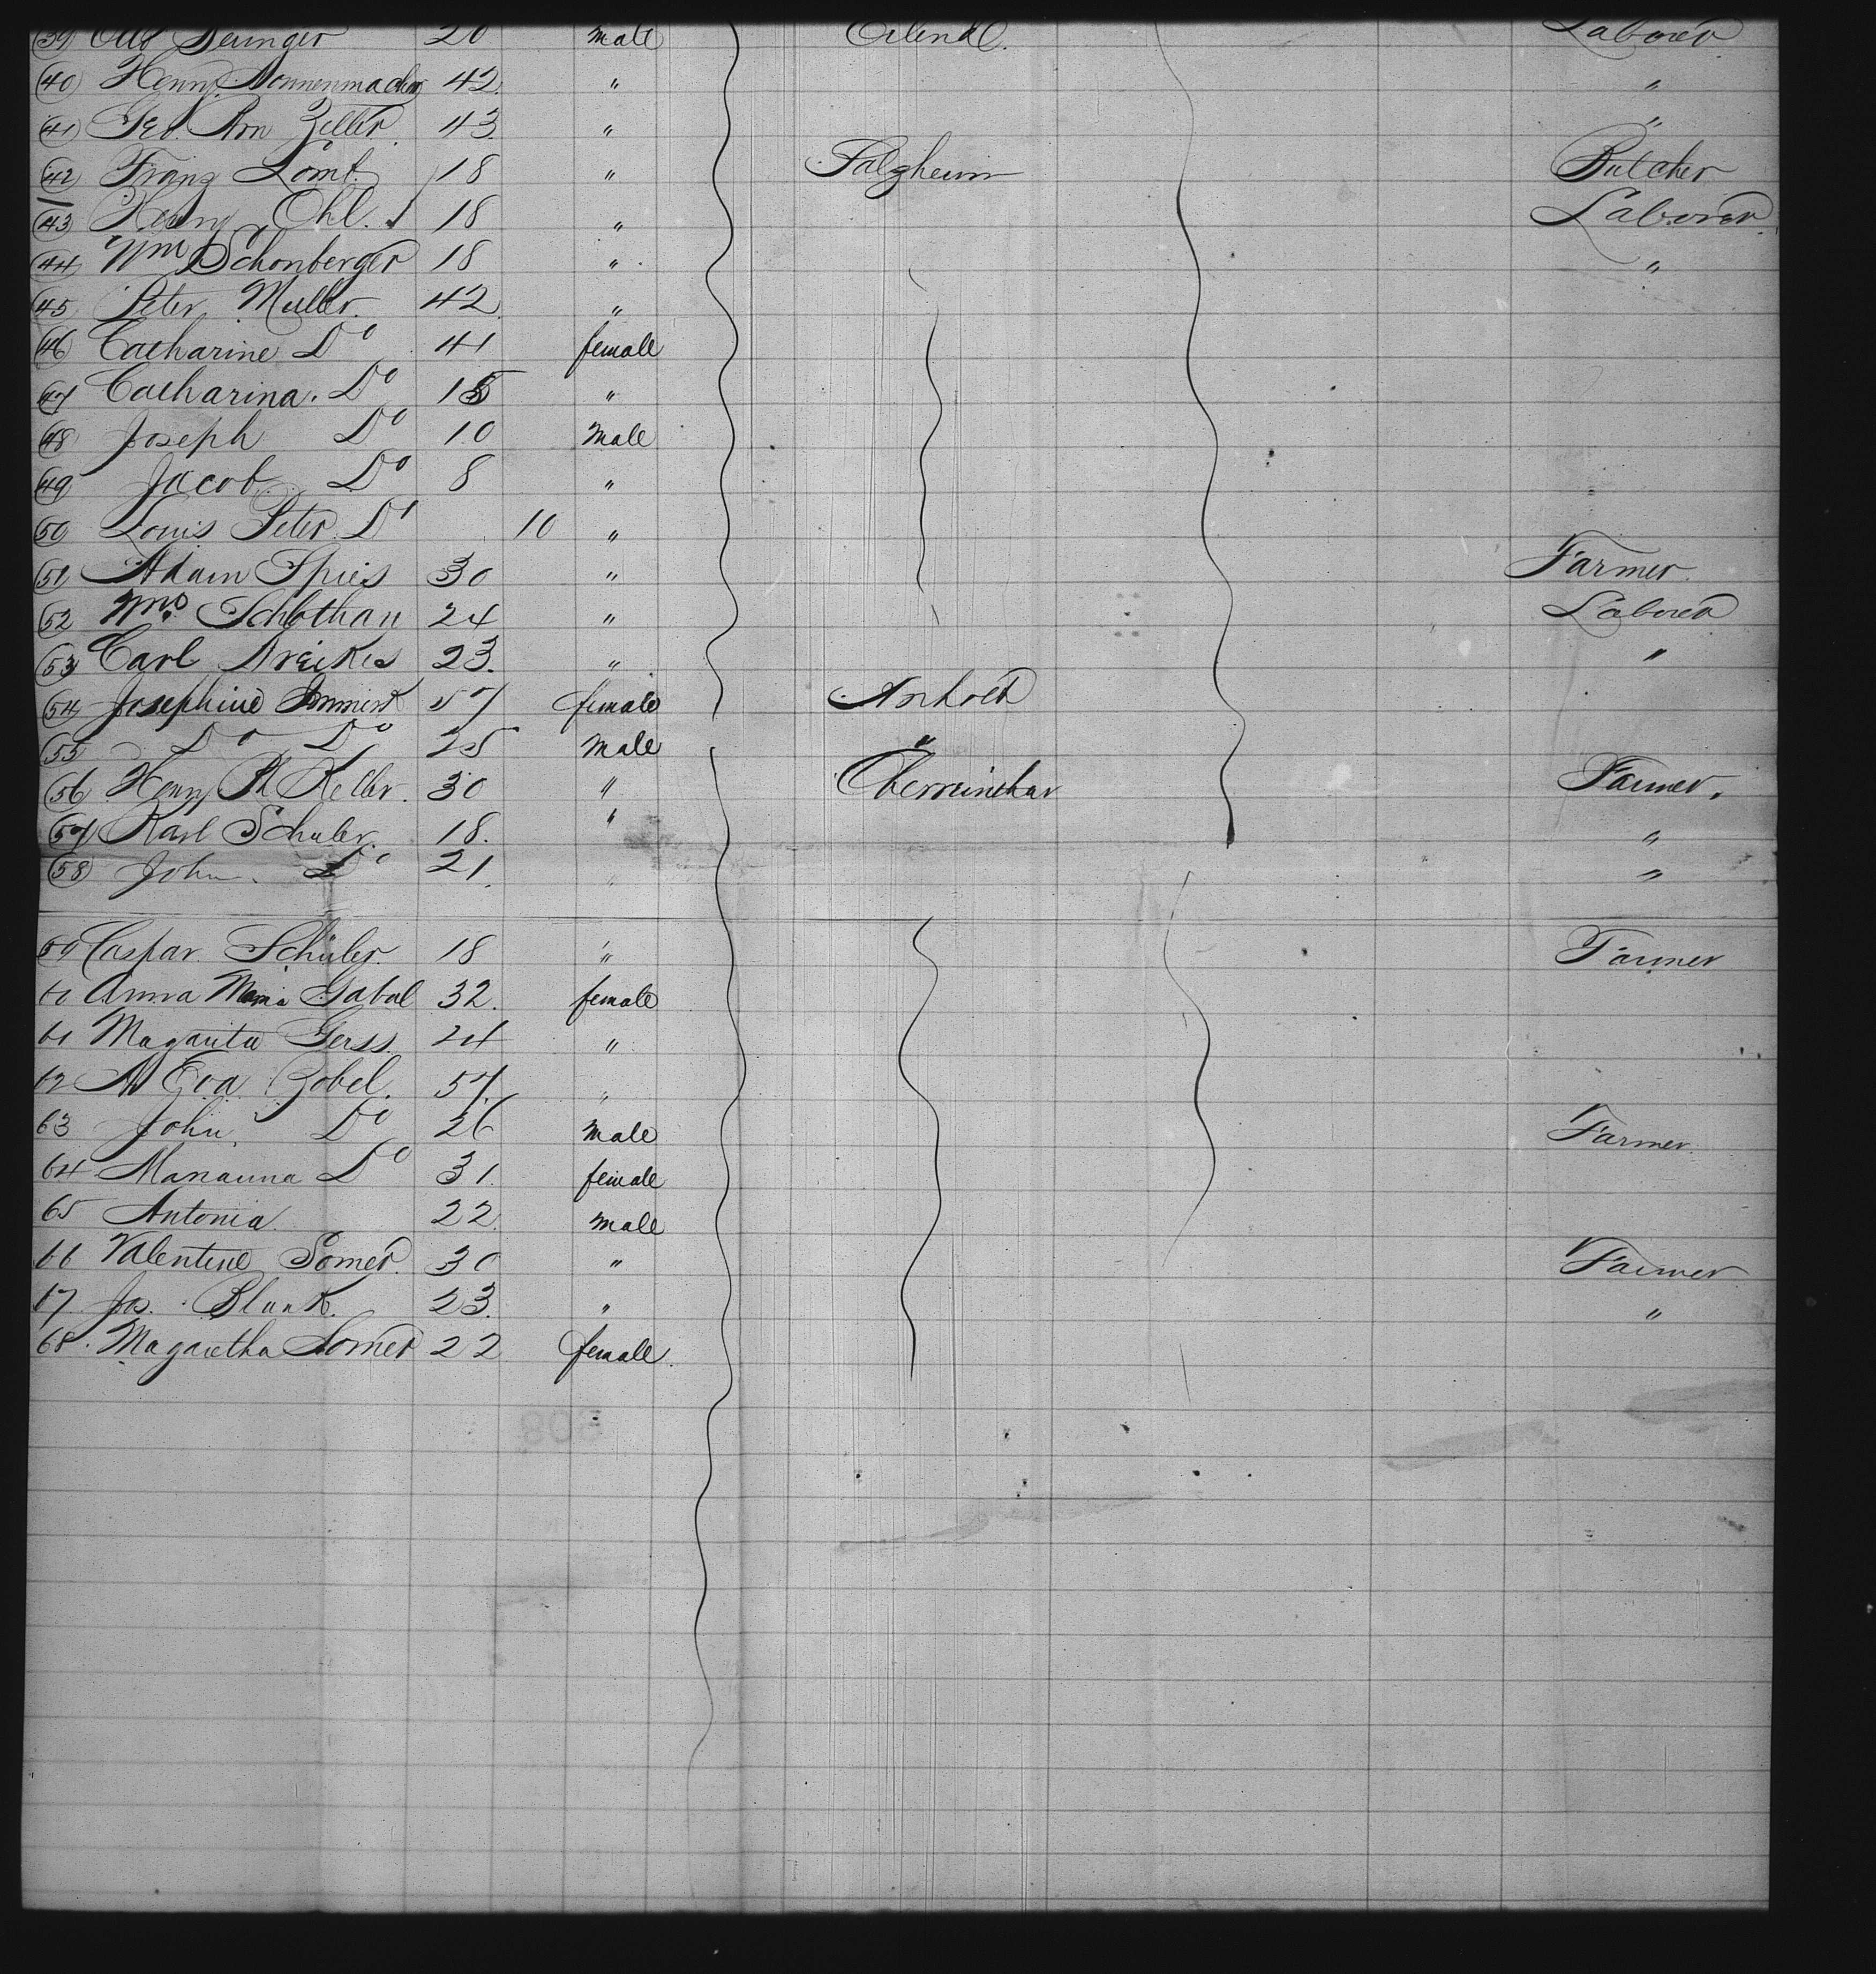 39 Otto 20 male Laborer
40 Henry Nonnenmacher 42 "  "
41 Geo. Zeller 43 "  "
42 Franz Lomb 18 " Salzheim Butcher
43 Henry Ohl 18 " Laborer
44 Wm Schonberger 18 "  "
45 Peter Muller 42 "
46 Catharine Do 41 female
47 Catharina. Do 15 "
48 Joseph Do 10 male
49 Jacob Do 8 "
50 Louis Peter Do 10 "
51 Adam Spies 30 " Farmer
52 24 " Laborer
53 Carl 23. "  "
54 Josephine 57 female Anholt
55 Do Do 25 male "
56 Henry Keller. 30 " Farmer.
57 Karl Schuler. 18. "  "
58 John Do 21. "  "
59 Caspar Schuler. 18 " Farmer
60 Anna Maria 32. female
61 24 "
62 Eva Zobel. 57. "
63 John. Do 26 male Farmer.
64 Marianna Do 31. female
65 Antonia 22. male
66 Valentine Somer. 30 " Farmer
67 Jos. Blank. 23. "  "
68. Magaretha Somer 22 female.
808